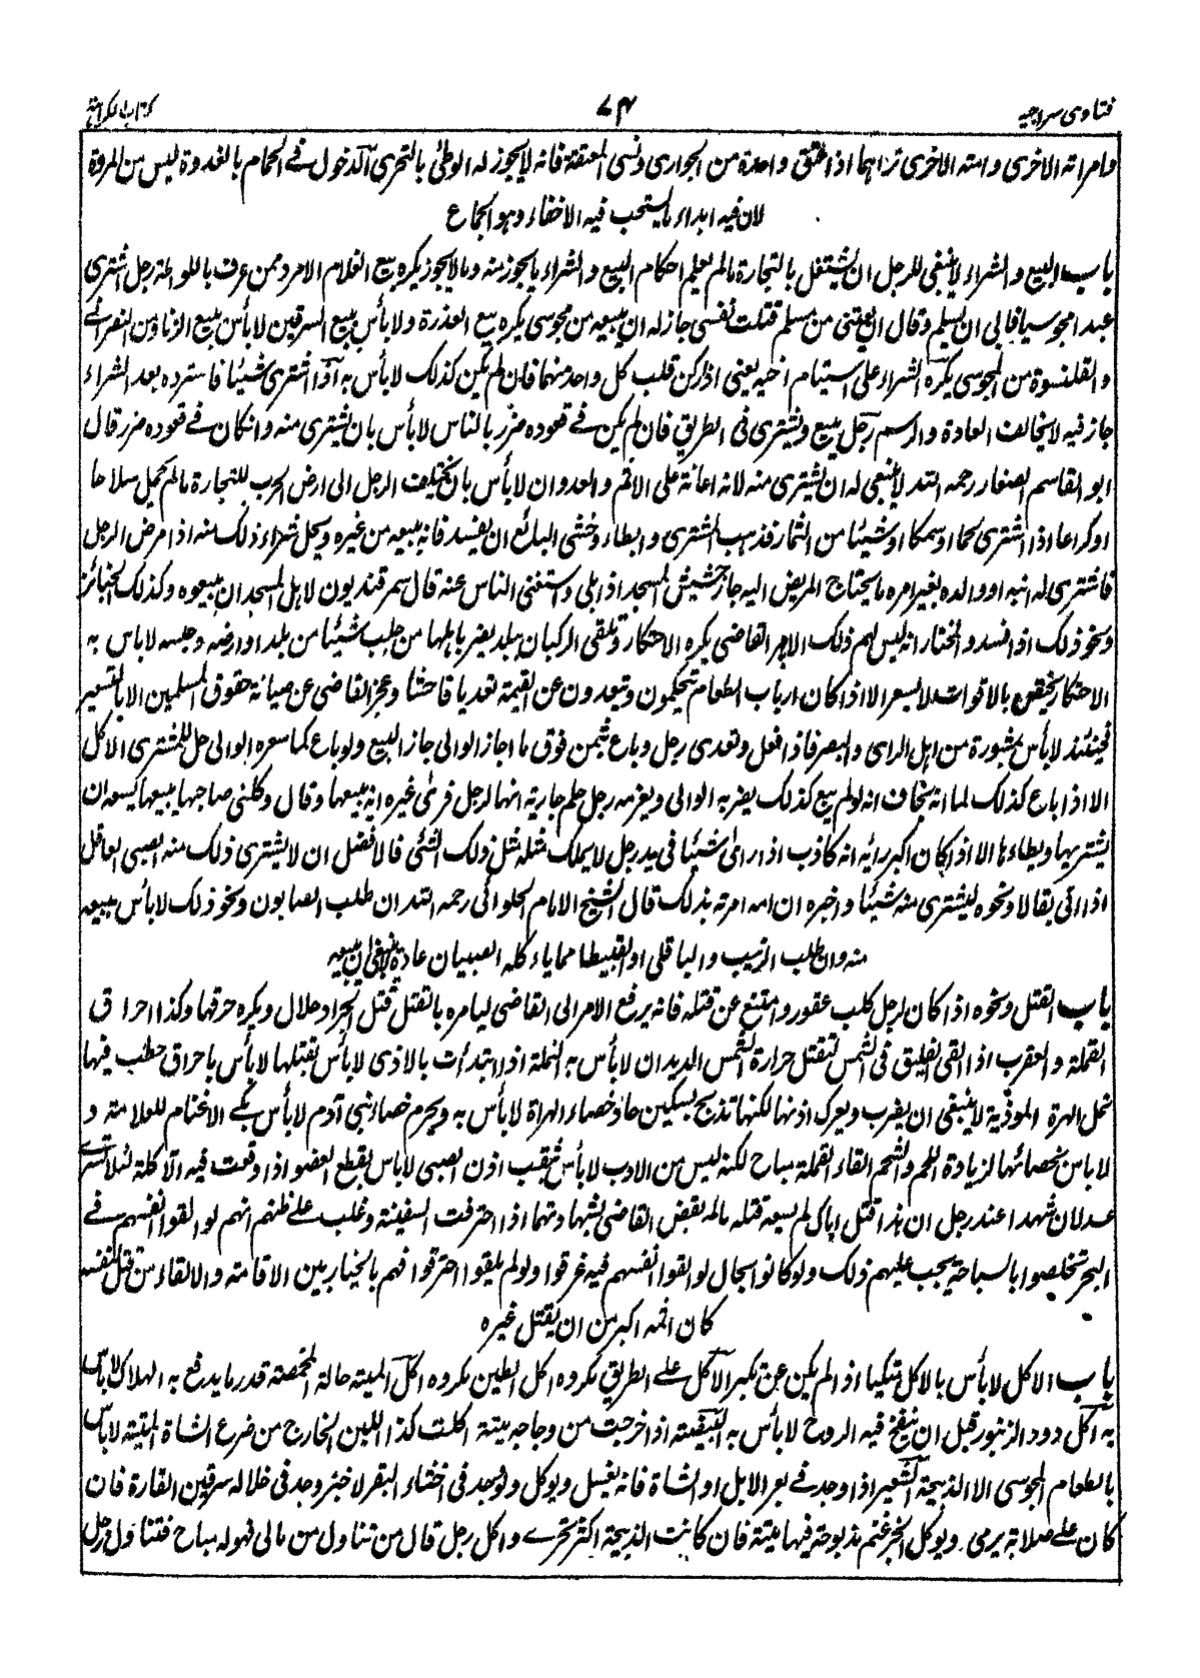 فتاوى سراجيه ٧٤ كتاب الكراهية
وامراته الاخرى وامته الاخرى تراهما اذا اعتق واحدة من الجوارى ونسى المعتقة فانه لا يجوز له الوطئ بالتحرى الدخول فے الحمام بالغدوة ليس من المروة
لان فيه ابداء ما يستحب فيه الاخفاء وهو الجماع
باب البيع والشراء لا ينبغى للرجل ان يشتغل بالتجارة مالم يعلم احكام البيع والشراء ما يجوز منه وما لا يجوز يكره بيع الغلام الامرد ممن عرف باللواطة رجل اشترى
عبدا مجوسيا فابى ان يسلم وقال ان بعتنى من مسلم قتلت نفسى جاز له ان يبيعه من مجوسى يكره بيع العذرة ولا بأس ببيع السرقين لا بأس ببيع الزنار من النصرانے
والقلنسوة من المجوسى يكره الشراء على استيام اخيه يعنى اذا ركن قلب كل واحد منهما فان لم يكن كذلك لا بأس به اذا اشترى شيئا فاسترده بعد الشراء
جاز فيه لا يخالف العادة والرسم رجل يبيع ويشترى فى الطريق فان لم يكن فے قعوده ضرر بالناس لا بأس بان يشترى منه وان كان فے قعوده ضرر قال
ابو القاسم الصفار رحمه الله لا ينبغى له ان يشترى منه لانه اعانة على الاثم والعدوان لا بأس بان يختلف الرجل الى ارض الحرب للتجارة مالم يحمل سلاحا
او كراعا اذا اشترى لحما او سمكا او شيئا من الثمار فذهب المشترى وابطاء وخشى البائع ان يفسد فانه يبيعه من غيره ويحل شراء ذلك منه اذا مرض الرجل
فاشترى له ابنه او والده بغير امره ما يحتاج المريض اليه جاز حشيش المسجد اذا بلى واستغنى الناس عنه قال سمرقنديون لاهل المسجد ان يبيعوه وكذلك الجنائز
ونحو ذلك اذا فسد والمختار انه ليس لهم ذلك الا بامر القاضى يكره الاحتكار وتلقى الركبان ببلد يضر باهلها من جلب شيئا من بلد او ارضه وحبسه لا باس به
الاحتكار يختص بالاقوات ولا يسعر الا اذا كان ارباب الطعام يتحكمون ويتعدون عن القيمة تعديا فاحشا وعجز القاضى عن صيانة حقوق المسلمين الا بالتسعير
فحينئذ لا بأس بمشورة من اهل الراى والبصر فاذا فعل وتعدى رجل وباع بثمن فوق ما اجاز الوالى جاز البيع ولو باع كما سعره الوالى حل للمشترى الاكل
الا اذا باع كذلك لما انه يخاف انه لو لم يبع كذلك يضربه الوالى ويغرمه رجل علم جارية انها لرجل فرأى غيره انه يبيعها وقال وكلنى صاحبها ببيعها يسعه ان
يشتريها ويطاءها الا اذا كان اكبر رأيه انه كاذب اذا رأى شيئا فى يد رجل لا يملك مثله مثل ذلك الشئ فالافضل ان لا يشترى ذلك منه الصبى العاقل
اذا اتى بقالا ونحوه ليشترى منه شيئا واخبره ان امه امرته بذلك قال الشيخ الامام الحلوائى رحمه الله ان طلب الصابون ونحو ذلك لا بأس ببيعه
منه وان طلب الزبيب والباقلى او القبيطا مما ياءكله الصبيان عادة لا ينبغى ان يبيعه
باب القتل ونحوه اذا كان لرجل كلب عقور وامتنع عن قتله فانه يرفع الامر الى القاضى ليامره بالقتل قتل الجراد حلال ويكره حرقها وكذا احراق
القملة والعقرب اذا القى الفليق فى الشمس لتقتل حرارة الشمس الديدان لا بأس به النملة اذا ابتدأت بالاذى لا بأس بقتلها لا بأس باحراق حطب فيها
نمل الهرة الموذية لا ينبغى ان يضرب ويعرك اذنها لكنها تذبح بسكين حاد خصاء الهراة لا بأس به ويحرم خصاء بنى آدم لا بأس بكے الاغنام للعلامة و
لا باس بخصائها لزيادة اللحم والشحم القاء القملة مباح لكنه ليس من الادب لا بأس بثقب اذن الصبى لا باس بقطع العضو اذا وقعت فيه الآكلة لئلا تسرے
عدلان شهدا عند رجل ان هذا قتل اباك لم يسعه قتله مالم يقض القاضى بشهادتهما اذا احترقت السفينة وغلب علے ظنهم انهم لو القوا انفسهم فے
البحر تخلصوا بالسباحة يجب عليهم ذلك ولو كانوا بحال لو القوا انفسهم فيه غرقوا ولو لم يلقوا احترقوا فهم بالخيار بين الاقامة والالقاء من قتل نفسه
كان اثمه اكبر من ان يقتل غيره
باب الاكل لا بأس بالاكل متكيا اذا لم يكن عن تكبر الاكل علے الطريق مكروه اكل الطين مكروه اكل الميتة حالة المخمصة قدر ما يدفع به الهلاك لا بأس
به اكل دود الزنبور قبل ان ينفخ فيه الروح لا بأس به البيضة اذا خرجت من دجاجه ميتة اكلت كذا اللبن الخارج من ضرع الشاة الميتة لا بأس
بالطعام المجوسى الا الذبيحة الشعير اذا وجد فے بعر الابل او الشاة فانه يغسل ويوكل ولو وجد فى اختاء البقر لا خبز وجد فى خلاله سرقين الفارة فان
كان علے صلابة يرمى ويوكل الخبز غنم مذبوحة فيها ميتة فان كانت الذبيحة اكثر تحرے واكل رجل قال من تناول من مالى فهو له مباح فتناول رجل